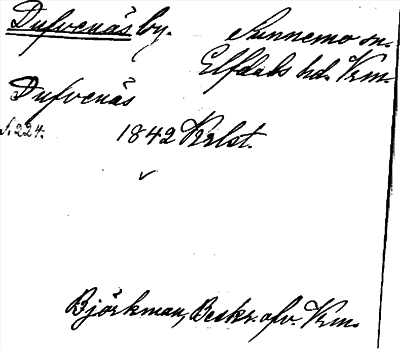 Dufvenäs by. Sunnemo sn.
Elfdals hd. Vrm.
Dufvenäs
s. 224. 1842 Krlst.
Björkman, Beskr. öfv. Vrm.